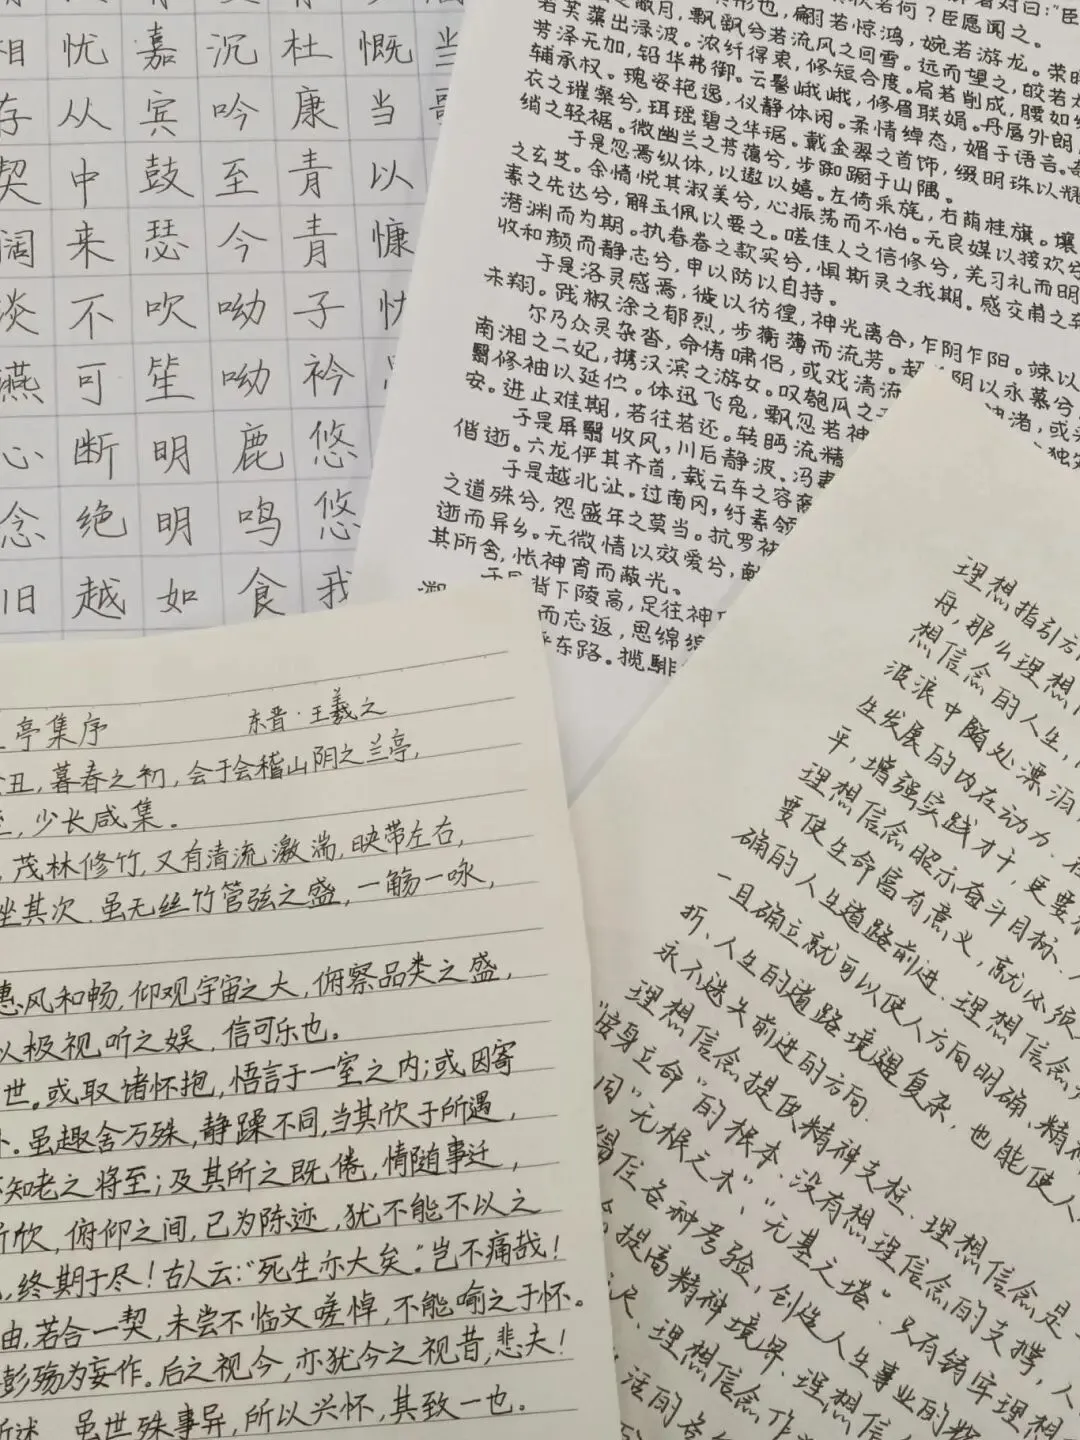 相 忧 嘉 沉 杜 慨 当
存 从 宾 吟 康 当
契 中 鼓 至 青 以
阔 来 瑟 今 青 慷
谈 不 吹 呦 子 忧
燕 可 笙 呦 衿
心 断 明 鹿 悠
念 绝 明 鸣 悠
旧 越 如 食 我
对曰:“臣
若何?臣愿闻之。
形也,翩若惊鸿,婉若游龙。荣
蔽月,飘飘兮若流风之回雪。远而望之,皎若太
若芙蕖出渌波。浓纤得衷,修短合度。肩若削成,腰如
芳泽无加,铅华弗御。云髻峨峨,修眉联娟。丹唇外朗
辅承权。瑰姿艳逸,仪静体闲。柔情绰态,媚于语言。
衣之璀粲兮,珥瑶碧之华琚。戴金翠之首饰,缀明珠以耀
绡之轻裾。微幽兰之芳蔼兮,步踟蹰于山隅。
于是忽焉纵体,以遨以嬉。左倚采旄,右荫桂旗。壤
之玄芝。余情悦其淑美兮,心振荡而不怡。无良媒以接欢兮
素之先达兮,解玉佩以要之。嗟佳人之信修兮,羌习礼而明
潜渊而为期。执眷眷之款实兮,惧斯灵之我期。感交甫之
收和颜而静志兮,申以防以自持。
于是洛灵感焉,徙以彷徨,神光离合,乍阴乍阳。竦以
未翔。践椒涂之郁烈,步蘅薄而流芳。超 以永慕兮
尔乃众灵杂沓,命俦啸侣,或戏清流 渚,或
南湘之二妃,携汉滨之游女。叹匏瓜之 独
翳修袖以延伫。体迅飞凫,飘忽若神
安。进止难期,若往若还。转眄流精
于是屏翳收风,川后静波。冯
偕逝。六龙俨其齐首,载云车之容裔
于是越北沚。过南冈,纡素领
之道殊兮,怨盛年之莫当。抗罗袂
逝而异乡。无微情以效爱兮,献
其所舍,怅神宵而蔽光。
背下陵高,足往神
而忘返,思绵绵
东路。揽騑
亭集序 东晋·王羲之
丑,暮春之初,会于会稽山阴之兰亭,
少长咸集.
茂林修竹,又有清流激湍,映带左右,
坐其次.虽无丝竹管弦之盛,一觞一咏,
惠风和畅,仰观宇宙之大,俯察品类之盛,
以极视听之娱,信可乐也。
世。或取诸怀抱,悟言于一室之内;或因寄
外.虽趣舍万殊,静躁不同,当其欣于所遇,
不知老之将至;及其所之既倦,情随事迁,
所欣,俯仰之间,已为陈迹,犹不能不以之
终期于尽!古人云:“死生亦大矣.”岂不痛哉!
由,若合一契,未尝不临文嗟悼,不能喻之于怀。
彭殇为妄作。后之视今,亦犹今之视昔,悲夫!
所述,虽世殊事异,所以兴怀,其致一也.
理想指引方
舟,那么理想
想信念的人生,
波浪中随处漂泊
生发展的内在动力.在
平,增强实践才干,更要
理想信念昭示奋斗目标.
要使生命富有意义,就必须
确的人生道路前进.理想信念
一旦确立就可以使人方向明确、精神
折、人生的道路境遇复杂,也能使人
永不迷失前进的方向.
理想信念提供精神支柱.理想信念是
身立命”的根本.没有想理信念的支撑,人
同“无根之木”、“无基之塔。只有铸牢理想
信各种考验,创造人生事业的辉
提高精神境界.理想信
尺、理想信念作
活的各